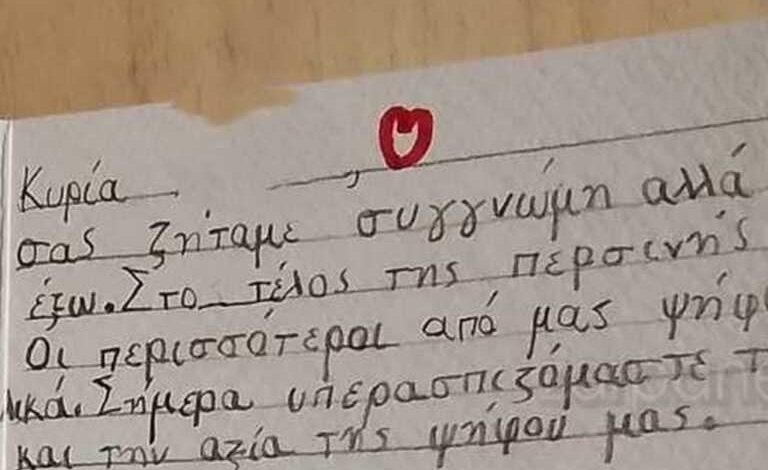 Κυρία ,
σας ζήταμε συγγνώμη αλλά
έξω. Στο τέλος της περσινής
Οι περισσότεροι από μας ψήφ
λικά. Σήμερα υπερασπιζόμαστε τ
και την αξία της ψήφου μας.